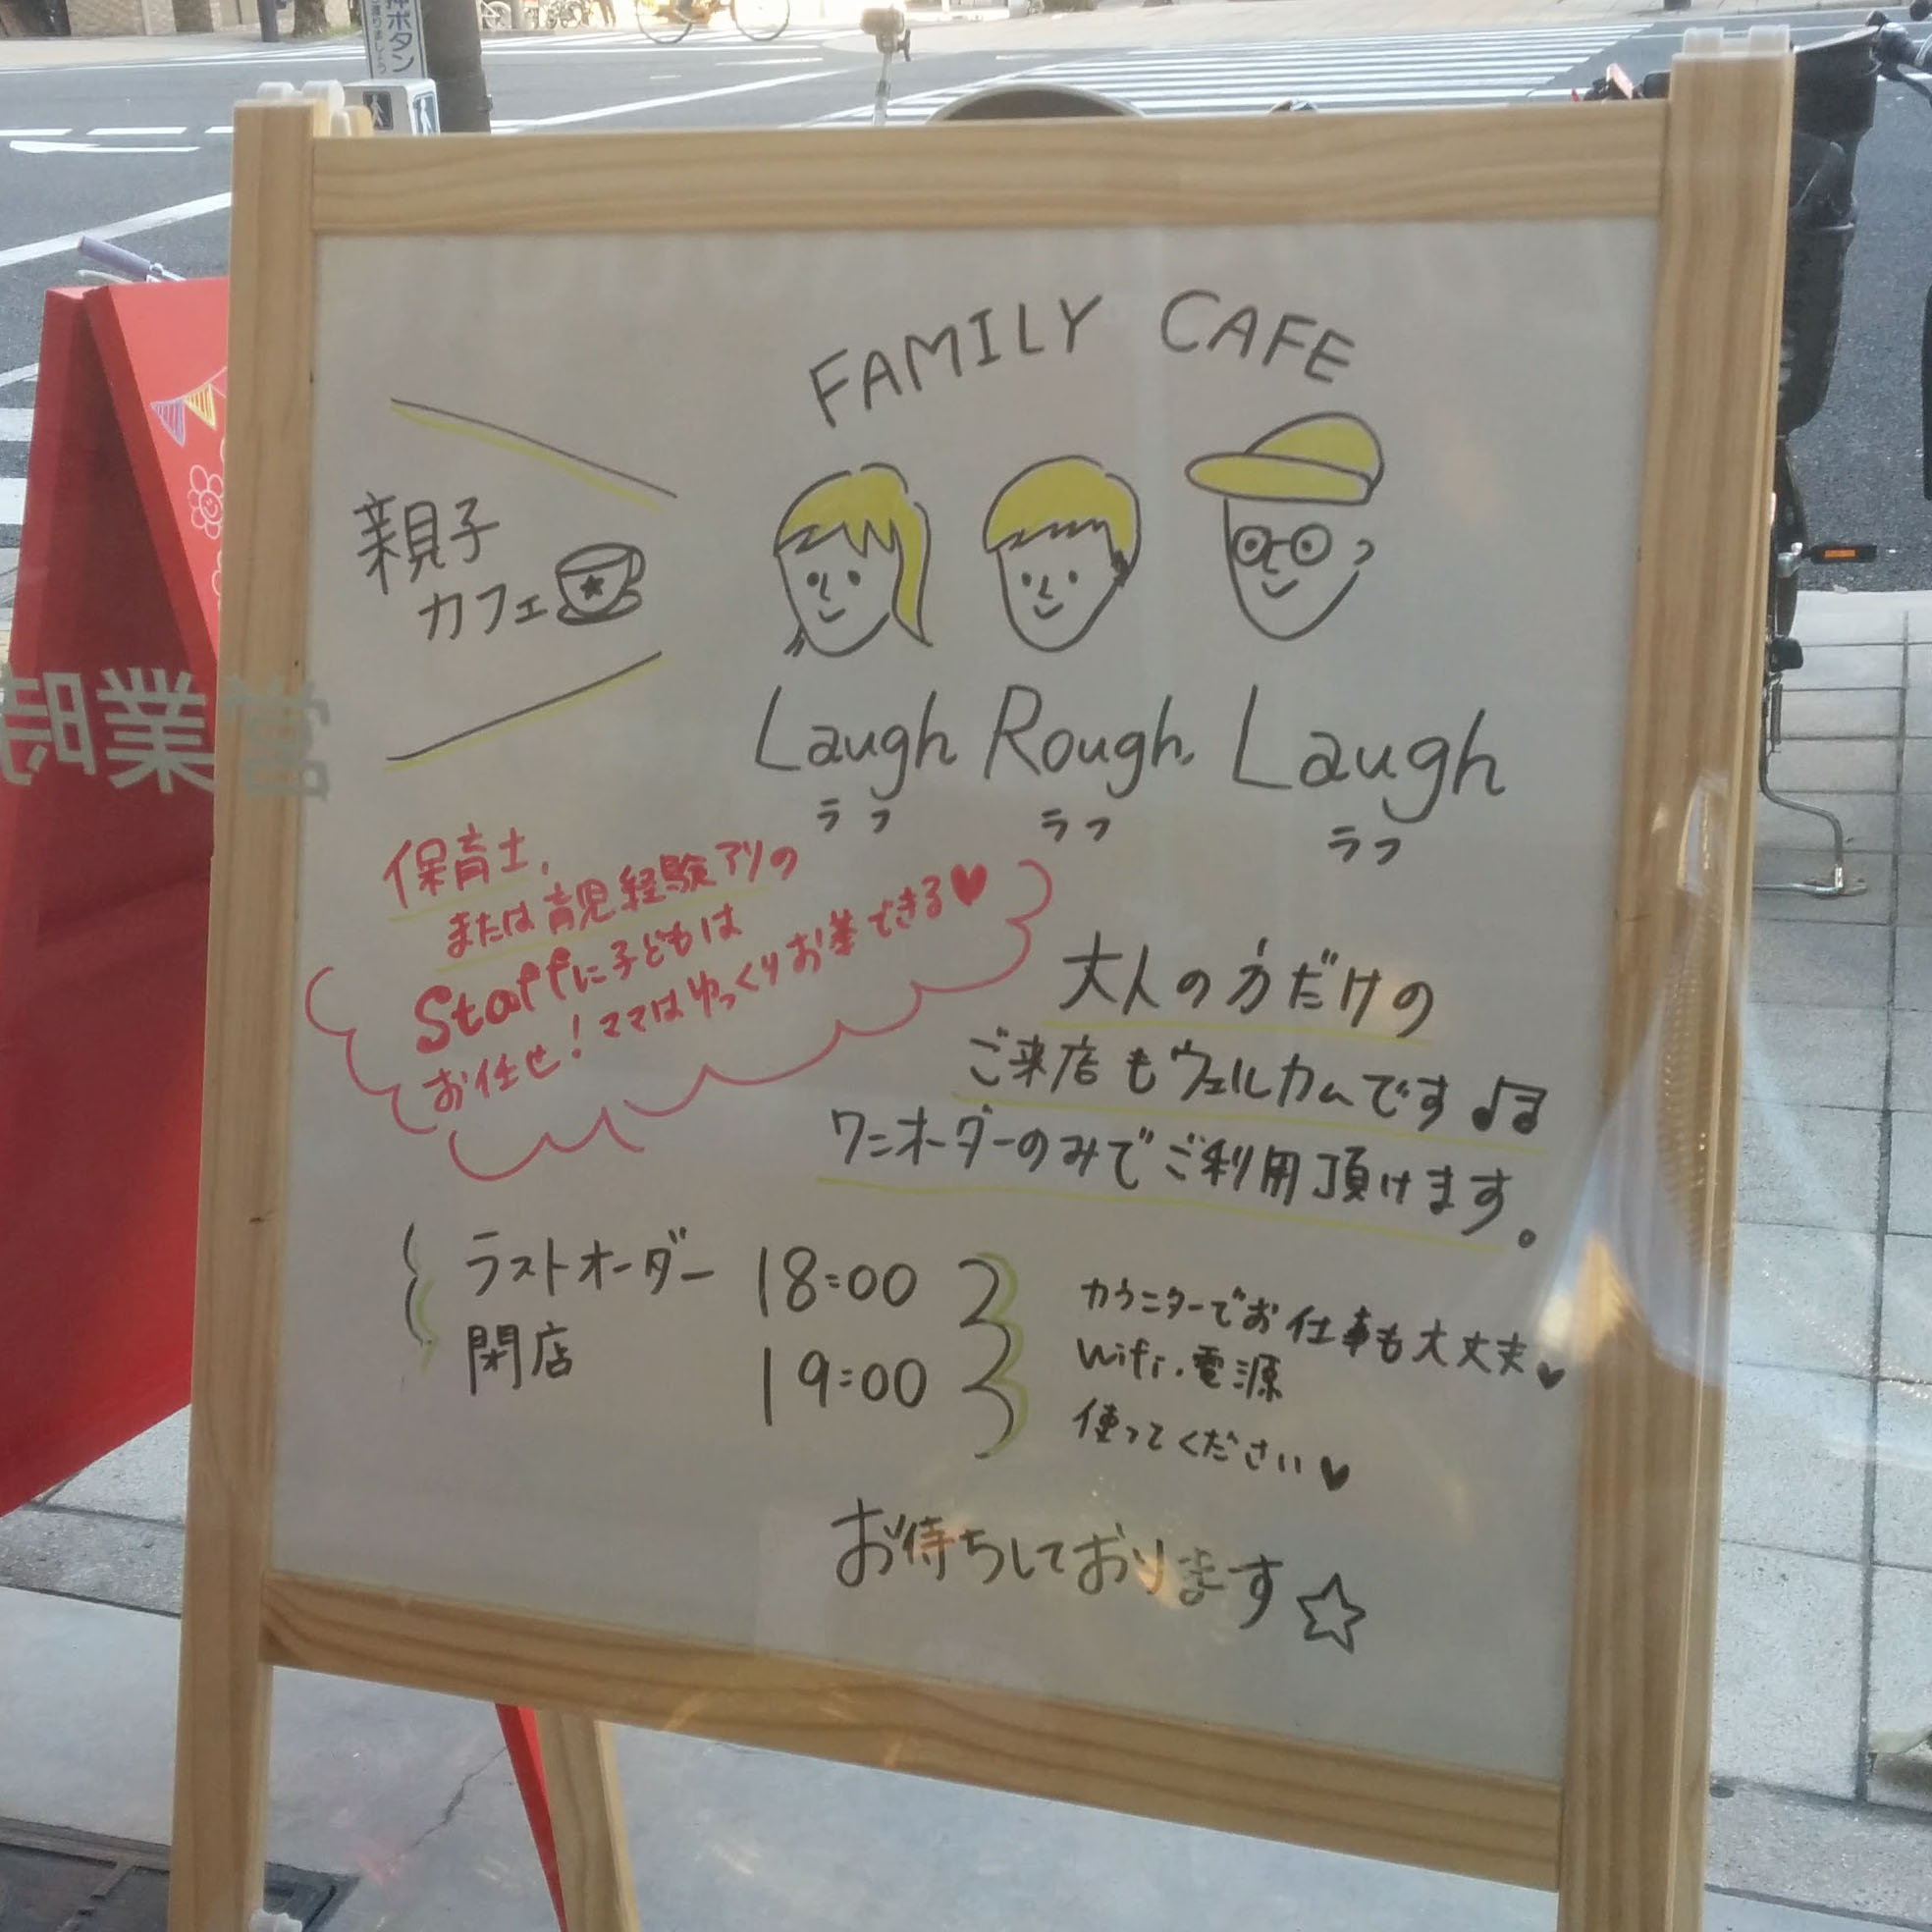 押ボタン
FAMILY CAFE
親子
カフェ
Laugh Rough. Laugh
ラフ ラフ ラフ
保育士,
または育児経験アリの
Staffに子どもは
お任せ!ママはゆっくりお茶できる♥
大人の方だけの
ご来店もウェルカムです♪♫
ワンオーダーのみでご利用頂けます。
ラストオーダー 18:00
閉店 19:00
カウンターでお仕事も大丈夫♥
Wifi.電源
使ってください♥
お待ちしております☆
営業時